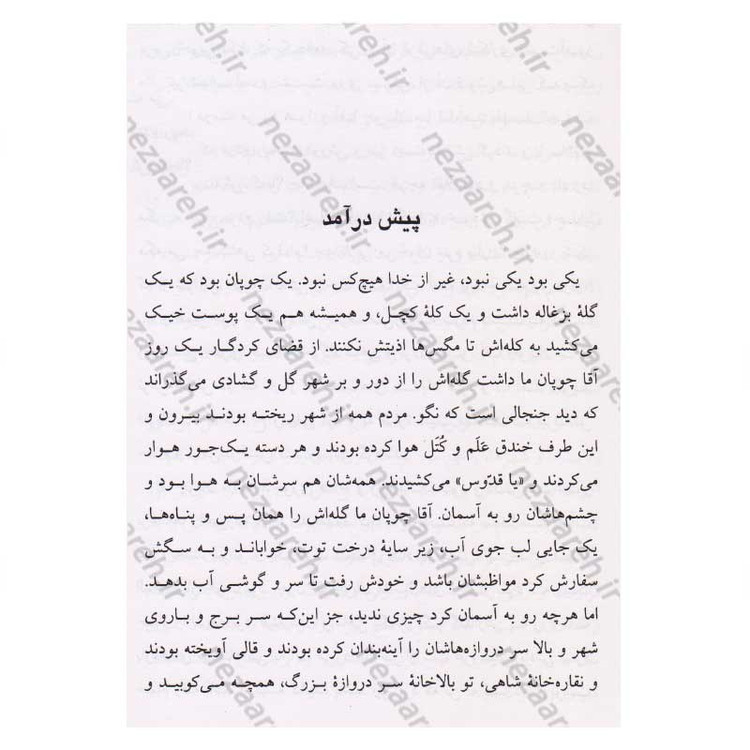 پیش درآمد
یکی بود یکی نبود، غیر از خدا هیچ‌کس نبود. یک چوپان بود که یـک
گلهٔ بزغاله داشت و یک کلهٔ کچـل، و همیشـه هم یـک پوست خیـک
می‌کشید به کله‌اش تا مگس‌ها اذیتش نکنند. از قضای کردگـار یـک روز
آقا چوپان ما داشت گله‌اش را از دور و بر شهر گل و گشادی می‌گذراند
که دید جنجالی است که نگو. مردم همه از شهر ریختـه بودنـد بیـرون و
این طرف خندق عَلَم و کُتَل هوا کرده بودند و هر دسته یک‌جور هـوار
می‌کردند و «یا قدّوس» می‌کشیدند. همه‌شان هم سرشان بـه هـوا بـود و
چشم‌هاشان رو به آسمان. آقا چوپان ما گله‌اش را همان پـس و پنـاه‌هـا،
یک جایی لب جوی آب، زیر سایهٔ درخت توت، خواباند و بـه سـگش
سفارش کرد مواظبشان باشد و خودش رفت تا سر و گوشـی آب بدهـد.
اما هرچه رو به آسمان کرد چیزی ندید، جز این‌کـه سـر بـرج و بـاروی
شهر و بالا سر دروازه‌هاشان را آینه‌بندان کرده بودند و قالی آویخته بودند
و نقاره‌خانهٔ شاهی، تو بالاخانهٔ سـر دروازهٔ بـزرگ، همچـه می‌کوبیـد و
nezaareh.ir